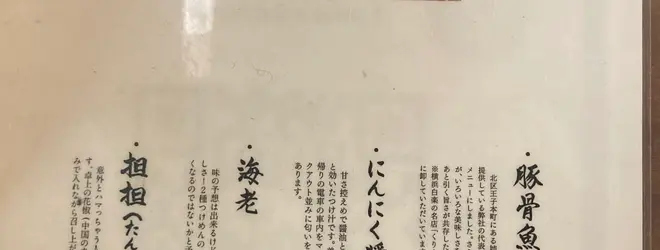 ・豚骨魚
北区王子本町にある姉
提供している弊社の代表
メニューにしました。さ
が、いろいろな美味しさ
あと引く旨さが共存した
※横浜白楽の名店「くり
に卸していただいていま
・にんにく
甘さ控えめで醤油と
と効いたつけ汁です。
帰りの電車の車内をマ
クアウト並みに匂いを
あります。
・海老
味の予想は出来るけど
しさ！2種つけめんの
くなるのではないかと
・担担（たん
意外とハマっちゃう
す。卓上の花椒（中国の
みで入れながら召し上